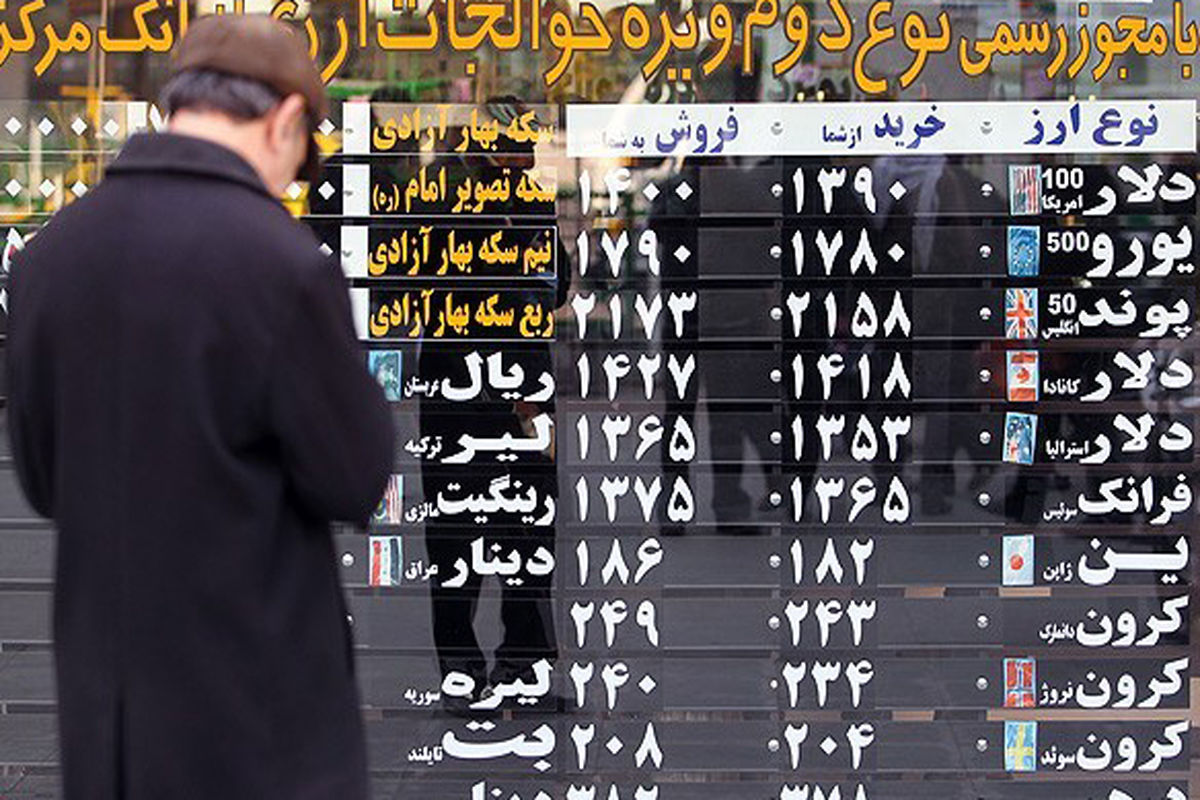 با مجوز رسمی نوع دوم ویژه حوالجات ارزی بانک مرکز
نوع ارز خرید ازشما فروش به شما سکه بهار آزادی
دلار 100 امریکا ۱۳۹۰ ۱۴۰۰ سکه تصویر امام (ره)
یورو 500 ۱۷۸۰ ۱۷۹۰ نیم سکه بهار آزادی
پوند 50 انگلیس ۲۱۵۸ ۲۱۷۳ ربع سکه بهار آزادی
دلار کانادا ۱۴۱۸ ۱۴۲۷ ریال عربستان
دلار استرالیا ۱۳۵۳ ۱۳۶۵ لیر ترکیه
فرانک سوئیس ۱۳۶۵ ۱۳۷۵ رینگیت مالزی
ین ژاپن ۱۸۲ ۱۸۶ دینار عراق
کرون دانمارک ۲۴۳ ۲۴۹
کرون نروژ ۲۳۴ ۲۴۰ لیره سوریه
کرون سوئد ۲۰۴ ۲۰۸ بت تایلند